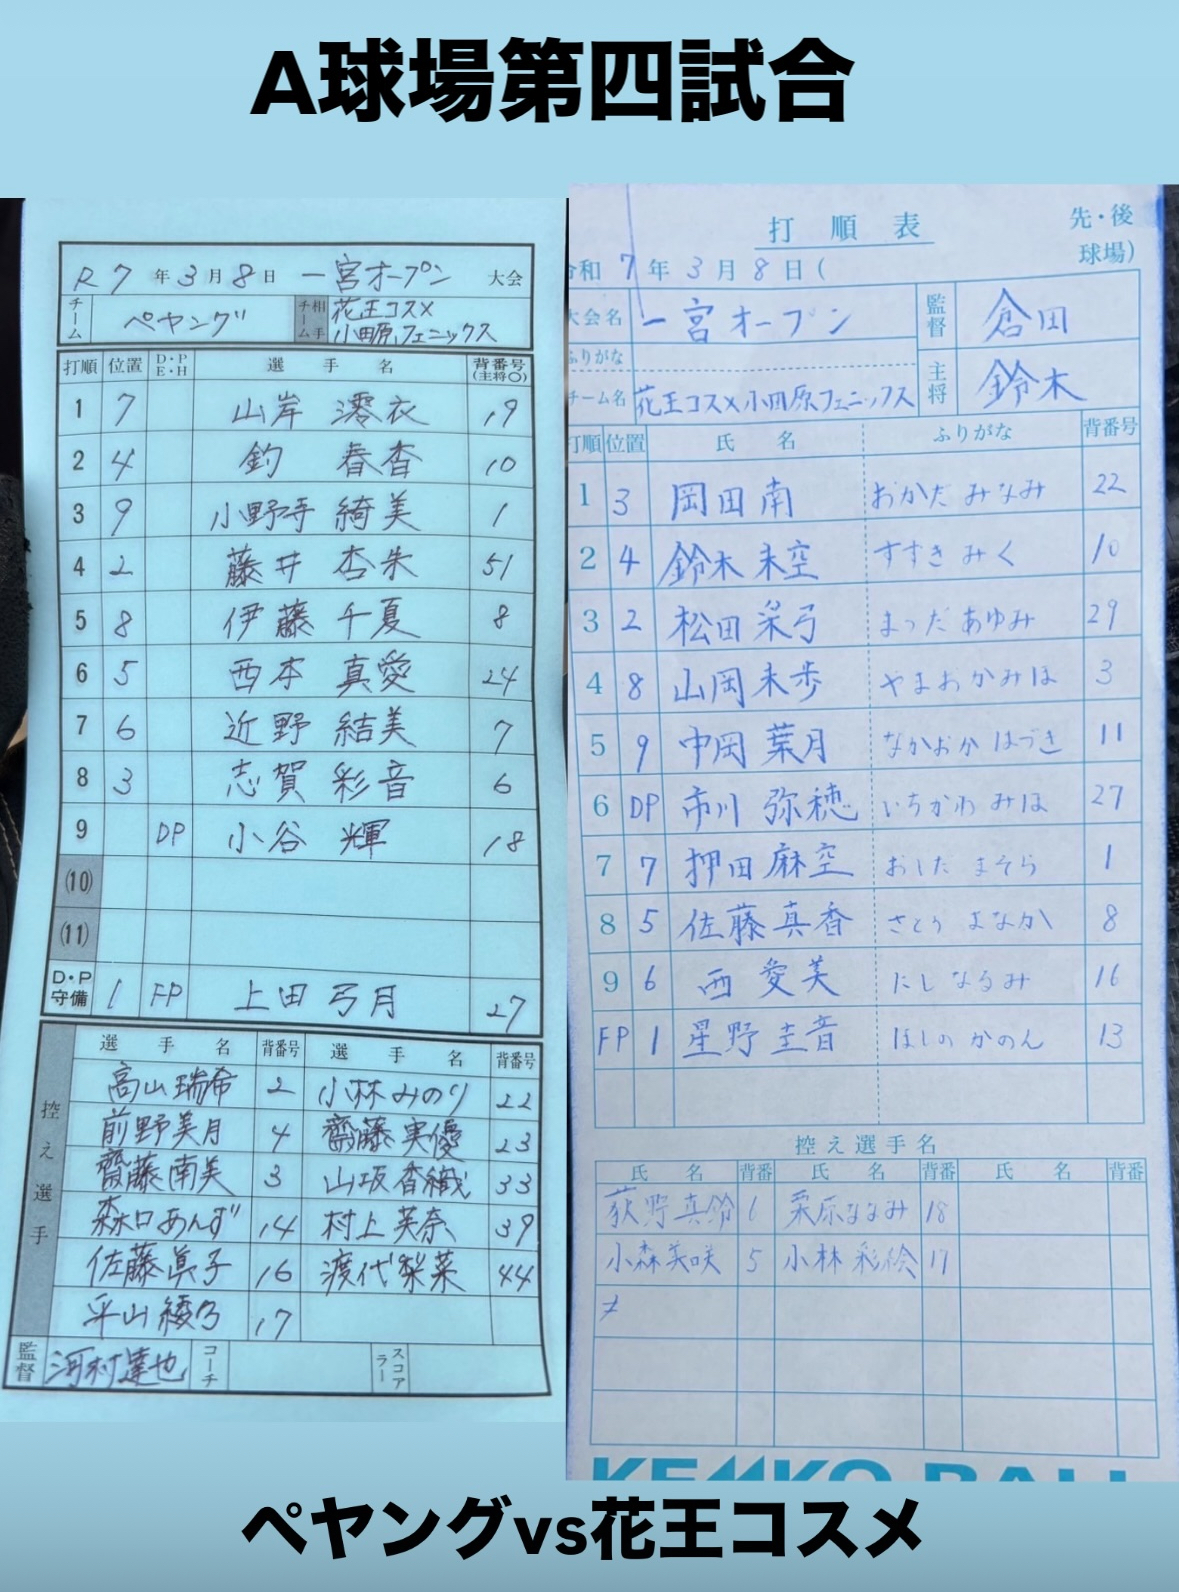 A球場第四試合
R7年3月8日 一宮オープン 大会
チーム ペヤング 相手チーム 花王コスメ小田原フェニックス
打順 位置 D・P E・H 選手名 背番号(主将〇)
1 7 山岸 澪衣 19
2 4 釣 春杏 10
3 9 小野寺 綺美 1
4 2 藤井 杏朱 51
5 8 伊藤 千夏 8
6 5 西本 真愛 24
7 6 近野 結美 7
8 3 志賀 彩音 6
9 DP 小谷 輝 18
(10)
(11)
D・P守備 1 FP 上田 弓月 27
控え選手
選手名 背番号 選手名 背番号
高山瑞希 2 小林みのり 22
前野美月 4 齋藤実優 23
齋藤南美 3 山坂香織 33
森口あんず 14 村上英奈 39
佐藤眞子 16 渡代梨菜 44
平山綾乃 17
監督 河村達也 コーチ スコアラー
打順表 先・後
令和7年3月8日( 球場)
大会名 一宮オープン 監督 倉田
ふりがな
チーム名 花王コスメ小田原フェニックス 主将 鈴木
打順 位置 氏名 ふりがな 背番号
1 3 岡田南 おかだ みなみ 22
2 4 鈴木未空 すすき みく 10
3 2 松田采弓 まつだ あゆみ 29
4 8 山岡未歩 やまおかみほ 3
5 9 中岡葉月 なかおか はづき 11
6 DP 市川弥穂 いちかわ みほ 27
7 7 押田麻空 おしだ まそら 1
8 5 佐藤真香 さとう まなか 8
9 6 西愛美 にし なるみ 16
FP 1 星野圭音 ほしの かのん 13
控え選手名
氏名 背番 氏名 背番 氏名 背番
荻野真鈴 6 栗原ななみ 18
小森美咲 5 小林彩絵 17
KENKO BALL
ペヤングvs花王コスメ